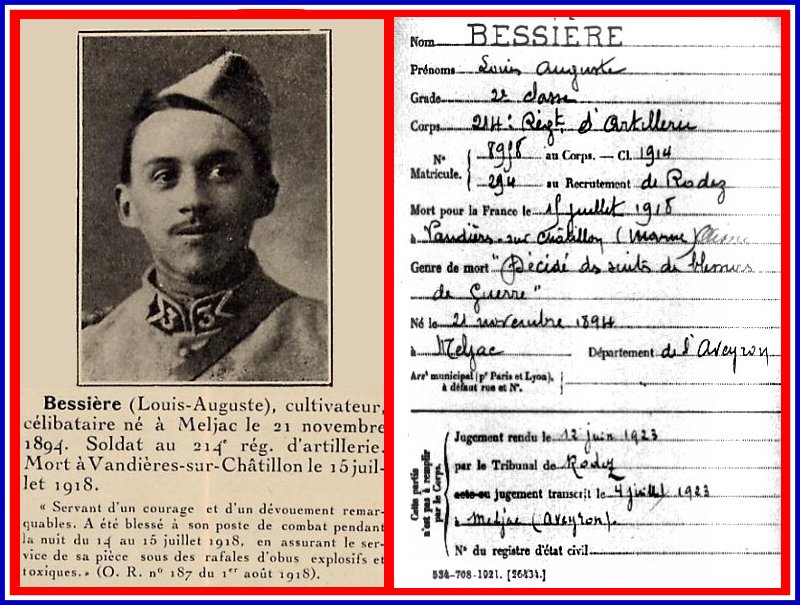 Bessière (Louis-Auguste), cultivateur,
célibataire né à Meljac le 21 novembre
1894. Soldat au 214e rég. d'artillerie.
Mort à Vandières-sur-Châtillon le 15 juil-
let 1918.
« Servant d'un courage et d'un dévouement remar-
quables. A été blessé à son poste de combat pendant
la nuit du 14 au 15 juillet 1918, en assurant le ser-
vice de sa pièce sous des rafales d'obus explosifs et
toxiques. » (O. R. no 187 du 1er août 1918).
Nom BESSIÈRE
Prénoms Louis Auguste
Grade 2e classe
Corps 214e Régt. d'Artillerie
No Matricule. 8958 au Corps. — Cl. 1914
294 au Recrutement de Rodez
Mort pour la France le 15 juillet 1918
à Vandières-sur Châtillon (Marne)
Genre de mort "Décédé des suites de blessures
de Guerre"
Né le 21 novembre 1894
à Meljac Département de l'Aveyron
Arrt municipal (pr Paris et Lyon),
à défaut rue et No.
Cette partie
n'est pas à remplir
par le Corps.
Jugement rendu le 12 juin 1923
par le Tribunal de Rodez
acte ou jugement transcrit le 4 juillet 1923
à Meljac (Aveyron).
No du registre d'état civil
534-708-1921. [26434.]